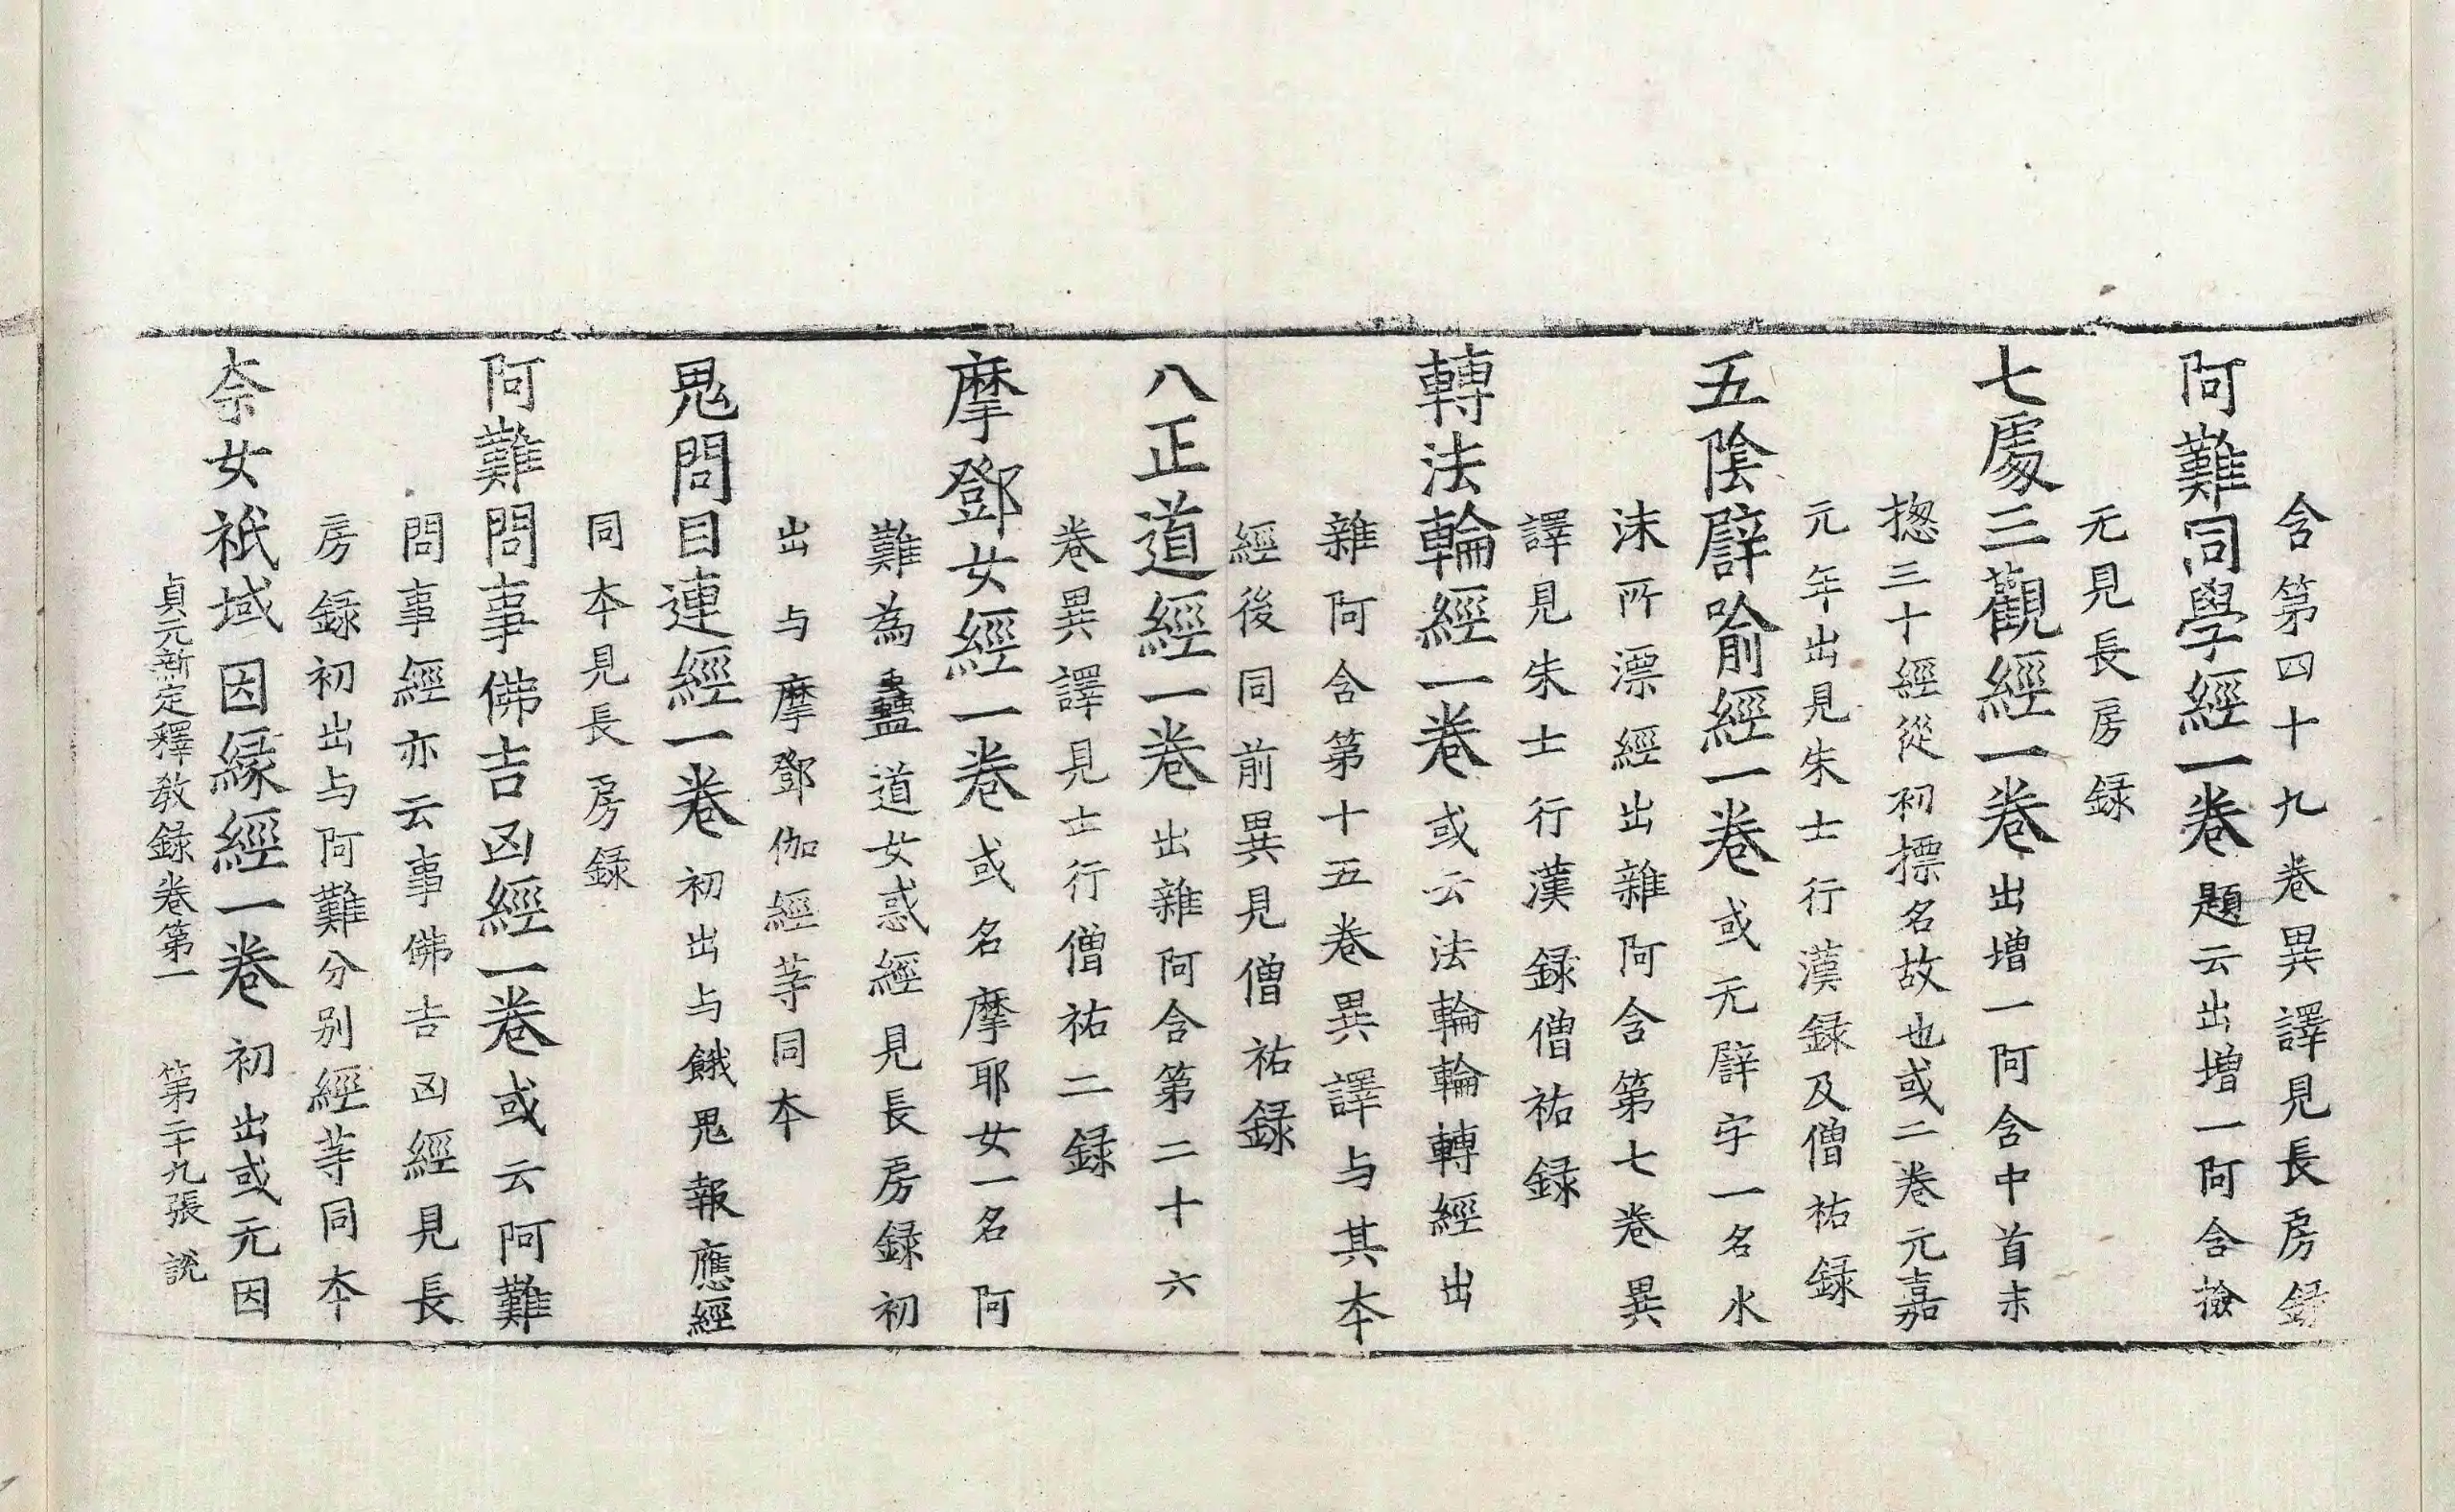 含第四十九卷異譯見長房録
阿難同學經一卷題云出增一阿含撿
无見長房録
七處三觀經一卷出增一阿含中首末
揔三十經從初摽名故也或二卷元嘉
元年出見朱士行漢録及僧祐録
五陰譬喻經一卷或无譬字一名水
沫所漂經出雜阿含第七卷異
譯見朱士行漢録僧祐録
轉法輪經一卷或云法輪輪轉經出
雜阿含第十五卷異譯与其本
經後同前異見僧祐録
八正道經一卷出雜阿含第二十六
卷異譯見士行僧祐二録
摩鄧女經一卷或名摩耶女一名阿
難為蠱道女惑經見長房録初
出与摩鄧伽經䓁同夲
鬼問目連經一卷初出与餓鬼報應經
同夲見長房録
阿難問事佛吉凶經一卷或云阿難
問事經亦云事佛吉凶經見長
房録初出与阿難分别經䓁同夲
柰女祇域因緣經一卷初出或无因
貞元新定釋教録卷第一 第二十九張 說